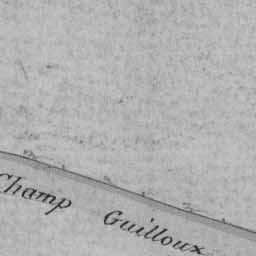 Champ Guilloux